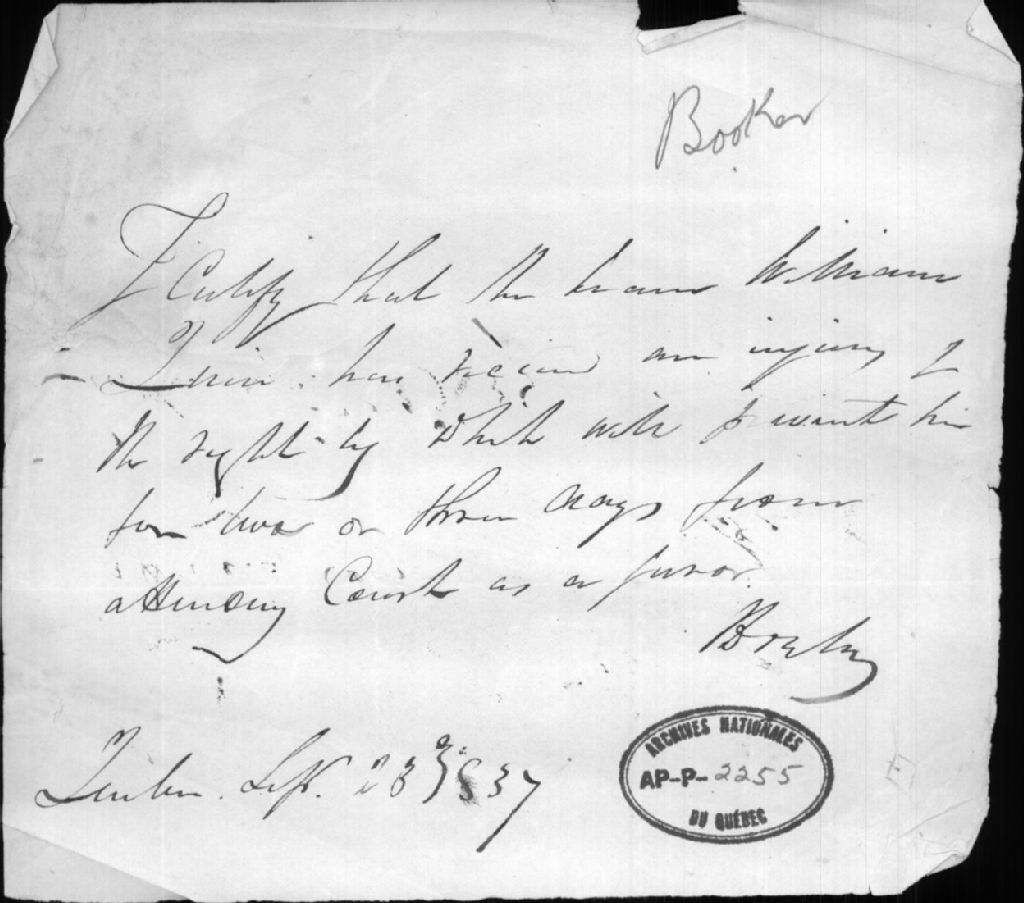 Booker
I Certify that the
William
has received an injury of
the right leg which will prevent him
for two or three days from
attending Court as a juror.
Quebec. Sept. 28 1837
ARCHIVES NATIONALES
AP-P-2255
DU QUÉBEC